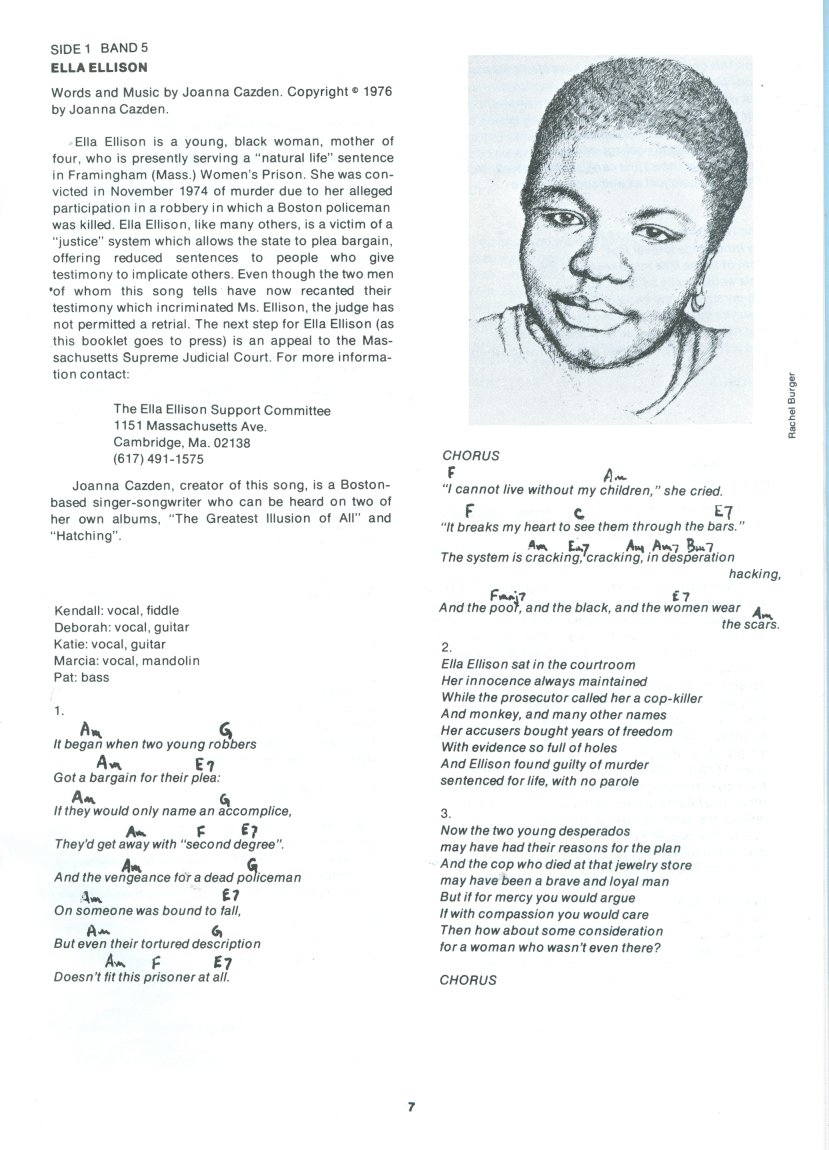 SIDE 1 BAND 5
ELLA ELLISON
Words and Music by Joanna Cazden. Copyright © 1976
by Joanna Cazden.
Ella Ellison is a young, black woman, mother of
four, who is presently serving a “natural life” sentence
in Framingham (Mass.) Women's Prison. She was con-
victed in November 1974 of murder due to her alleged
participation in a robbery in which a Boston policeman
was killed. Ella Ellison, like many others, is a victim of a
“justice” system which allows the state to plea bargain,
offering reduced sentences to people who give
testimony to implicate others. Even though the two men
of whom this song tells have now recanted their
testimony which incriminated Ms. Ellison, the judge has
not permitted a retrial. The next step for Ella Ellison (as
this booklet goes to press) is an appeal to the Mas-
sachusetts Supreme Judicial Court. For more informa-
tion contact:
The Ella Ellison Support Committee
1151 Massachusetts Ave.
Cambridge, Ma. 02138
(617) 491-1575
Joanna Cazden, creator of this song, is a Boston-
based singer-songwriter who can be heard on two of
her own albums, “The Greatest Illusion of All” and
“Hatching”.
Kendall: vocal, fiddle
Deborah: vocal, guitar
Katie: vocal, guitar
Marcia: vocal, mandolin
Pat: bass
1.
Am G
It began when two young robbers
Am E7
Got a bargain for their plea:
Am G
If they would only name an accomplice,
Am F E7
They'd get away with “second degree”.
Am G
And the vengeance for a dead policeman
Am E7
On someone was bound to fall,
Am G
But even their tortured description
Am F E7
Doesn't fit this prisoner at all.
Rachel Burger
CHORUS
F Am
“I cannot live without my children,” she cried.
F C E7
“It breaks my heart to see them through the bars.”
Am Em7 Am Am7 Bm7
The system is cracking, cracking, in desperation
hacking,
Fmaj7 E7
And the poor, and the black, and the women wear
Am
the scars.
2.
Ella Ellison sat in the courtroom
Her innocence always maintained
While the prosecutor called her a cop-killer
And monkey, and many other names
Her accusers bought years of freedom
With evidence so full of holes
And Ellison found guilty of murder
sentenced for life, with no parole
3.
Now the two young desperados
may have had their reasons for the plan
And the cop who died at that jewelry store
may have been a brave and loyal man
But if for mercy you would argue
If with compassion you would care
Then how about some consideration
for a woman who wasn't even there?
CHORUS
7